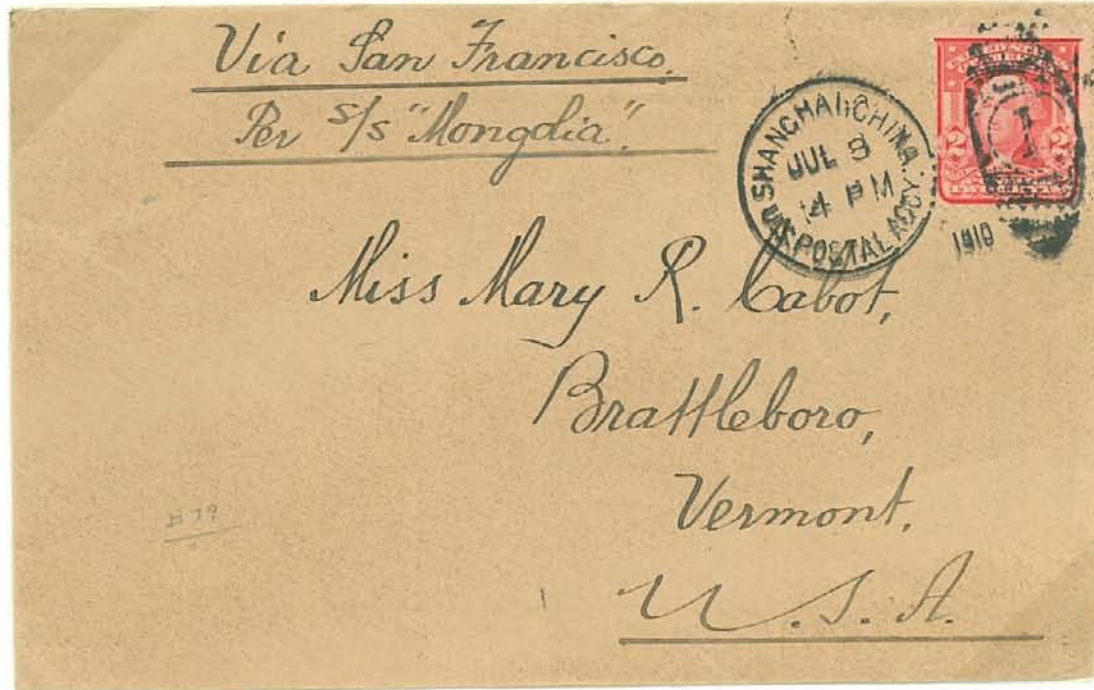 Via San Francisco.
Per S/S "Mongolia".
SHANGHAI, CHINA.
JUL 8
4 PM
U.S. POSTAL AGCY.
1910
2 2
1
Miss Mary R. Cabot,
Brattleboro,
Vermont.
U.S.A.